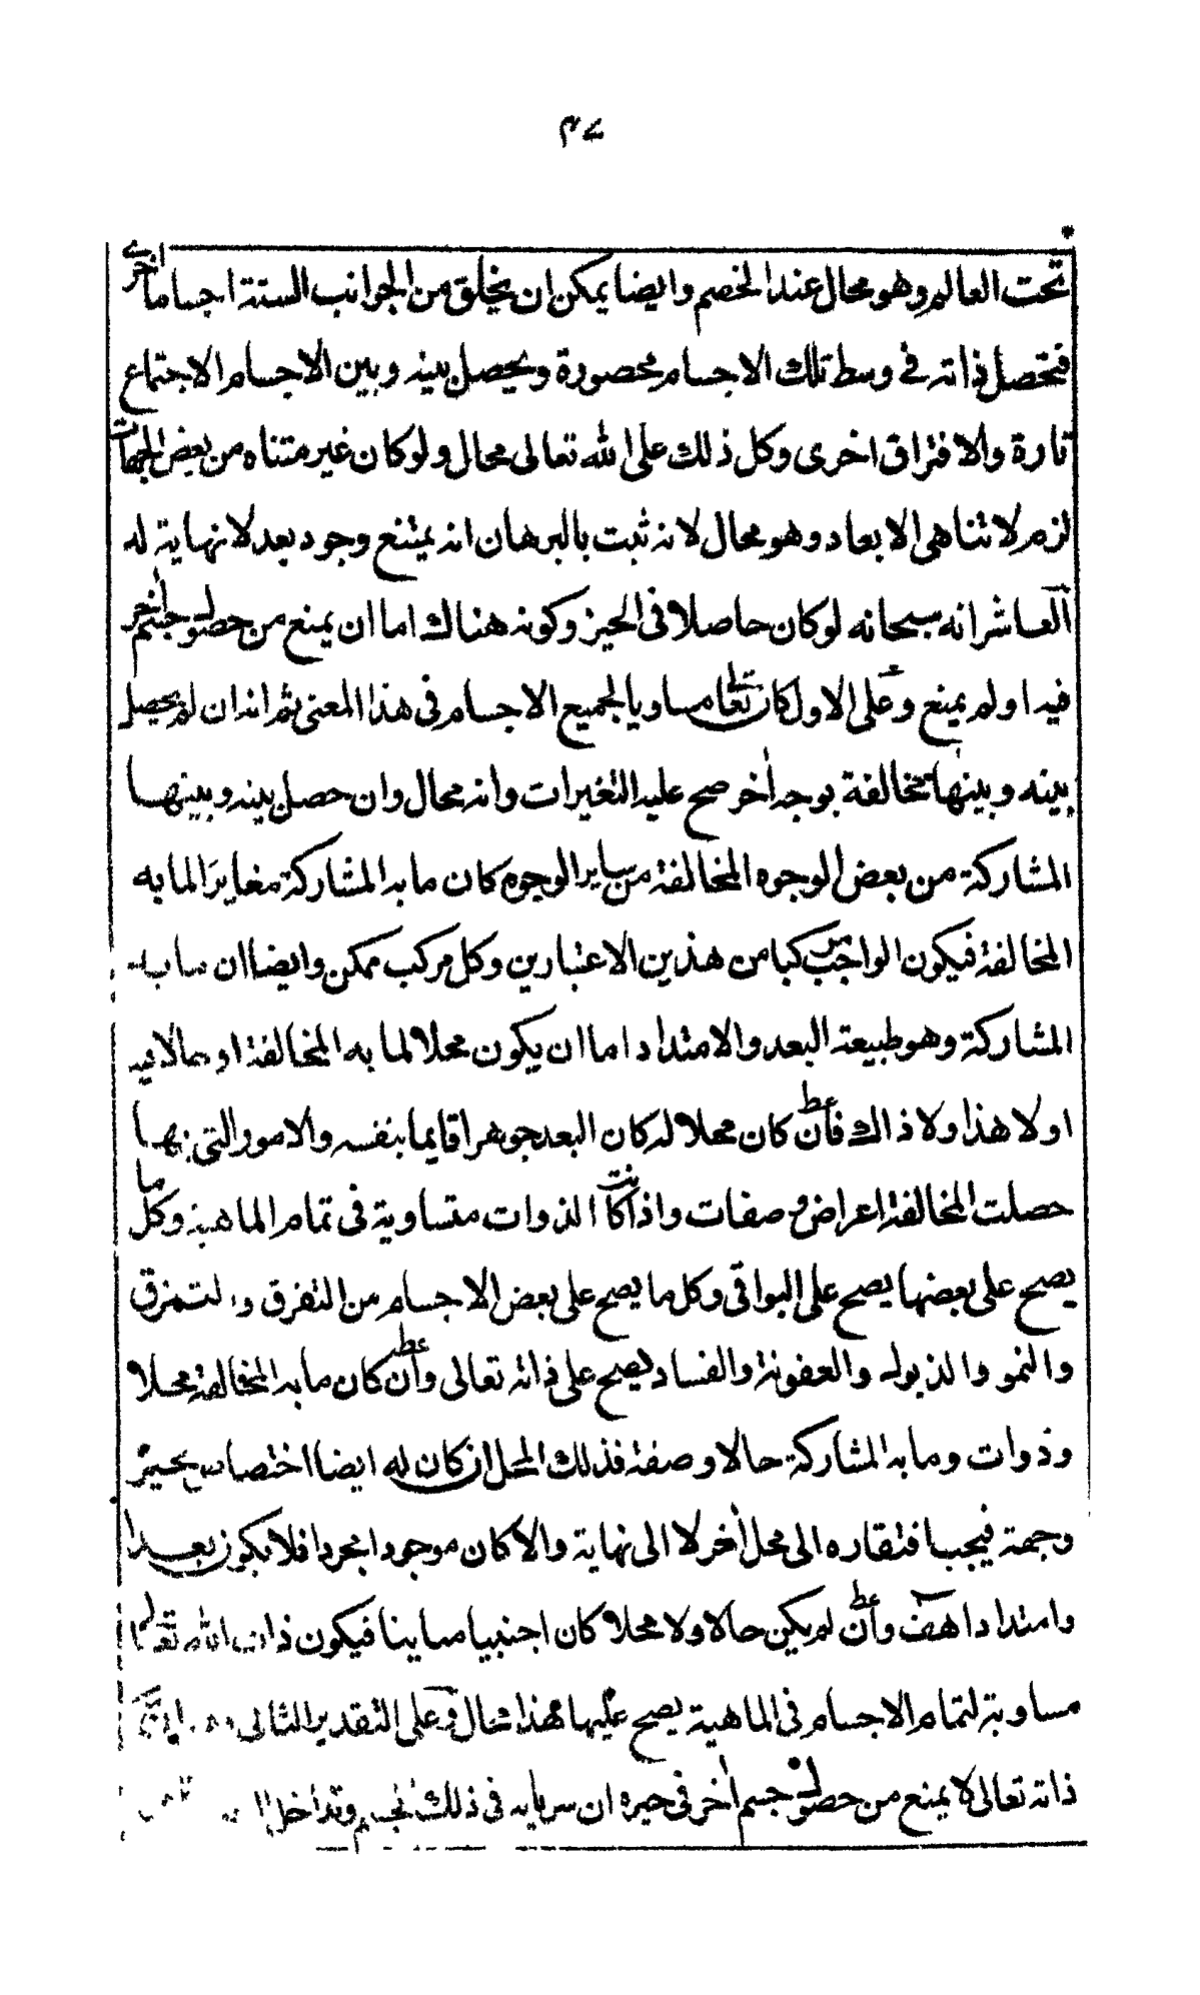 ٤٧
تحت العالم وهو محال عند الخصم وايضا يمكن ان يخلق من الجوانب الستة اجساما اخرے
فتحصل ذاته فے وسط تلك الاجسام محصورة ويحصل بينه وبين الاجسام الاجتماع
تارة والافتراق اخرى وكل ذلك على الله تعالى محال ولو كان غير متناه من بعض الجهات
لزم لا تناهى الابعاد وهو محال لانه ثبت بالبرهان انه يمتنع وجود بعد لا نهاية له
العاشر انه سبحانه لو كان حاصلا فى الحيز وكونه هناك اما ان يمنع من حصول جسم اخر
فيه او لم يمنع وعلى الاول كان تعالى مساويا لجميع الاجسام فى هذا المعنى ثم انه ان لم يحصل
بينه وبينها مخالفة بوجه اخر صح عليه التغيرات وانه محال وان حصل بينه وبينها
المشاركة من بعض الوجوه المخالفة من ساير الوجوه كان ما به المشاركة مغايرا لما به
المخالفة فيكون الواجب مركبا من هذين الاعتبارين وكل مركب ممكن وايضا ان ما به
المشاركة وهو طبيعة البعد والامتداد اما ان يكون محلا لما به المخالفة او حالا فيه
او لا هذا ولا ذاك فان كان محلا له كان البعد جوهرا قايما بنفسه والامور التى بها
حصلت المخالفة اعراض و صفات واذا كانت الذوات متساوية فى تمام الماهية وكل ما
يصح على بعضها يصح على البواقى وكل ما يصح على بعض الاجسام من التفرق و التمزق
والنمو والذبول والعفونة والفساد يصح على ذاته تعالى وان كان ما به المخالفة محلا
وذوات وما به المشاركة حالا وصفة فذلك المحل ان كان له ايضا اختصاص بحيز
وجهة فيجب افتقاره الى محل اخر لا الى نهاية والا كان موجودا مجردا فلا يكون بعدا
وامتدادا هف وان لم يكن حالا ولا محلا كان اجنبيا مباينا فيكون ذات الله تعالى
مساوية لتمام الاجسام فى الماهية يصح عليها هذا محال وعلى التقدير الثانى
ذاته تعالى لا يمنع من حصول جسم اخر فى حيزه ان سريانه فى ذلك الجسم وتداخل